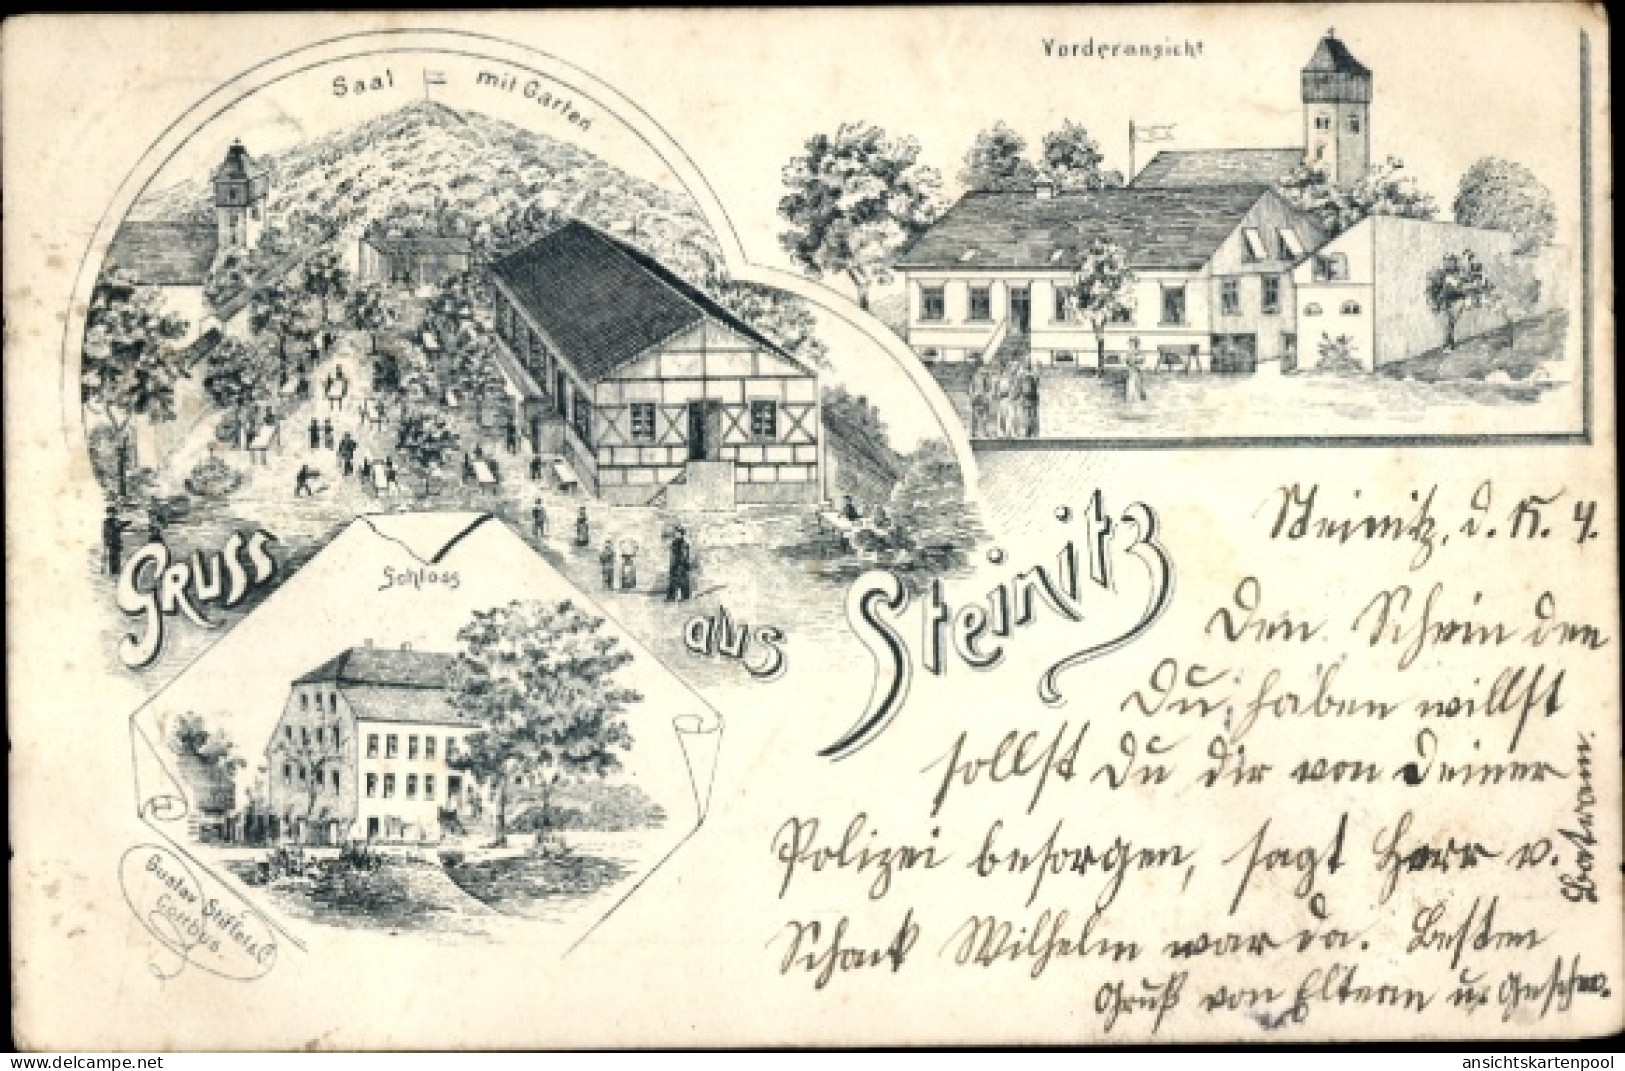 Saal mit Garten
Vorderansicht
Gruss aus Steinitz
Schloss
Gustav
Cottbus.
Steinitz, d. 4.
Den Schein den
Du haben willst
sollst Du dir von Deiner
Polizei besorgen, sagt Herr v.
Schack Wilhelm war da. Besten
Gruß von Eltern u. Geschw.
delcampe.net
ansichtskartenpool